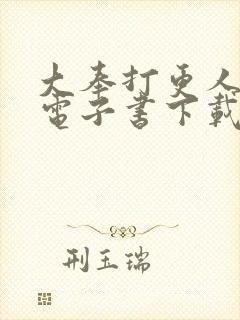 大奉打更人
電子書下載
刑玉瑞